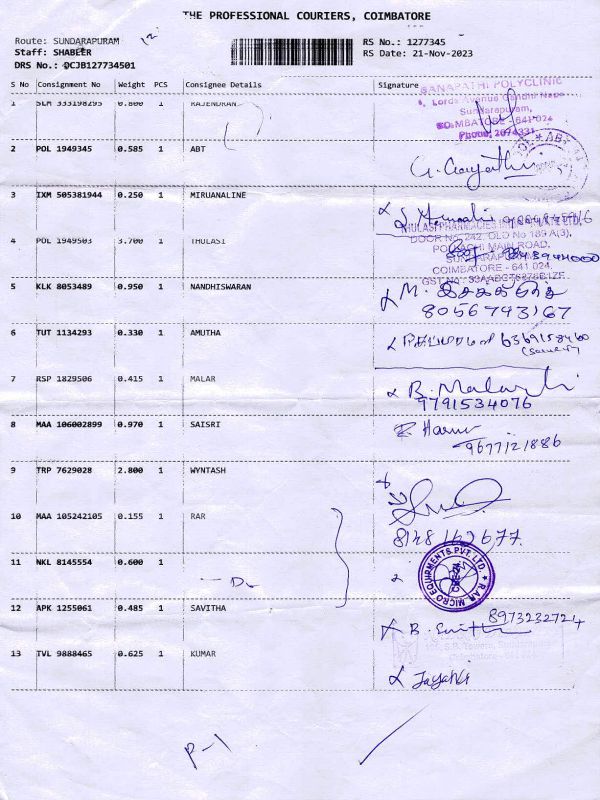 THE PROFESSIONAL COURIERS, COIMBATORE
Route: SUNDARAPURAM
Staff: SHABEER
DRS No.: DCJB127734501
RS No.: 1277345
RS Date: 21-Nov-2023
S No Consignment No Weight PCS Consignee Details Signature
1 SLM 333198295 0.800 1 RAJENDRAN
GANAPATHI POLYCLINIC
Sundarapuram,
COIMBATORE - 641 024
Phone: 2674331
2 POL 1949345 0.585 1 ABT
ABT
3 IXM 505381944 0.250 1 MIRUANALINE
4 POL 1949503 3.700 1 THULASI
DOOR No. 242, OLD No 189 A(3),
POLLACHI MAIN ROAD,
SUNDARAPURAM
COIMBATORE - 641 024.
5 KLK 8053489 0.950 1 NANDHISWARAN
M.
8056743167
6 TUT 1134293 0.330 1 AMUTHA
6369158460
7 RSP 1829506 0.415 1 MALAR
9791534076
8 MAA 106002899 0.970 1 SAISRI
9677121886
9 TRP 7629028 2.800 1 WYNTASH
10 MAA 105242105 0.155 1 RAR
8148162677
11 NKL 8145554 0.600 1
RAR MICRO EQUIPMENTS PVT. LTD.
12 APK 1255061 0.485 1 SAVITHA
8973232724
13 TVL 9888465 0.625 1 KUMAR
P-1